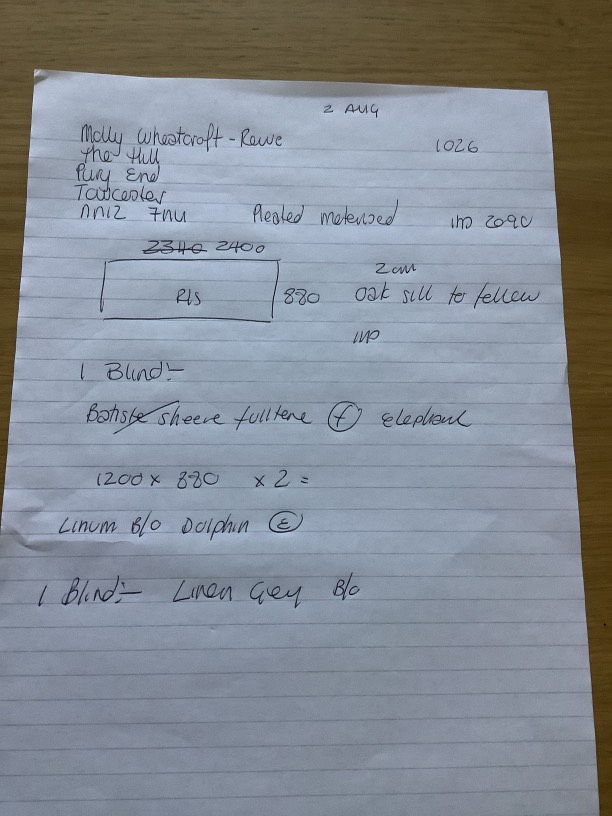 2 AUG
Molly Wheatcroft-Rowe 1026
The Hill
Pury End
Towcester
NN12 7NU Pleated motorised IMP 2090
2340 2400
2cm
R/S 880 oak sill to follow
IMP
1 Blind:-
Batiste Sheere fulltone (F) Elephant
1200 x 880 x 2 =
Linum B/O Dolphin (E)
1 Blind:- Linen Grey B/o